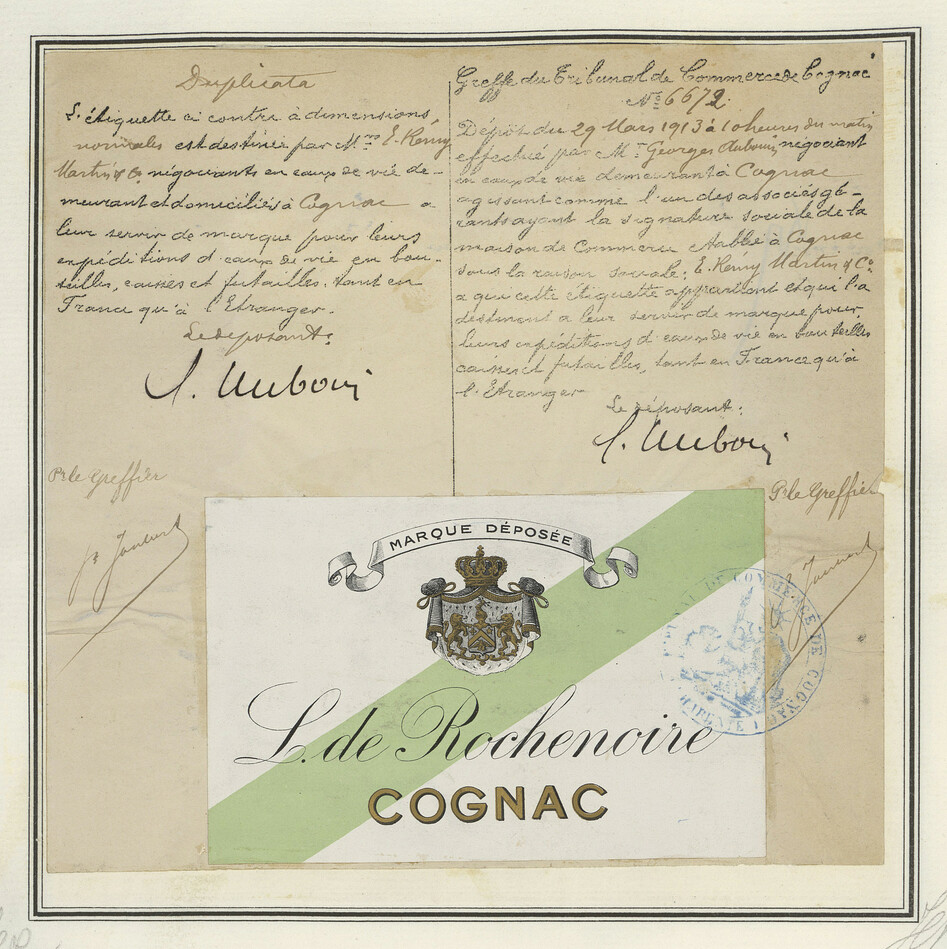 Duplicata
L'étiquette ci contre à dimensions
normales est destinée par Mrs E. Remy
Martin & Co négociants en eaux de vie de-
meurant et domiciliés à Cognac a
leur servir de marque pour leurs
expéditions d'eaux de vie en bou-
teilles, caisses et futailles, tant en
France qu'à l'Etranger.
Le déposant:
Pr le Greffier
Greffe du Tribunal de Commerce de Cognac
No 6672.
Dépôt du 29 Mars 1913 à 10 heures du matin
effectué par Mr Georges Auboin négociant
en eaux de vie demeurant à Cognac
agissant comme l'un des associés gé-
rants ayant la signature sociale de la
maison de Commerce établie à Cognac
sous la raison sociale: E. Remy Martin & Co.
a qui cette étiquette appartient et qui l'a
destinent a leur servir de marque pour
leurs expéditions d'eaux de vie en bouteilles
caisses et futailles, tant en France qu'à
l'Etranger
Le déposant:
Pr le Greffier
MARQUE DÉPOSÉE
L. de Rochenoire
COGNAC
TRIBUNAL DE COMMERCE DE COGNAC